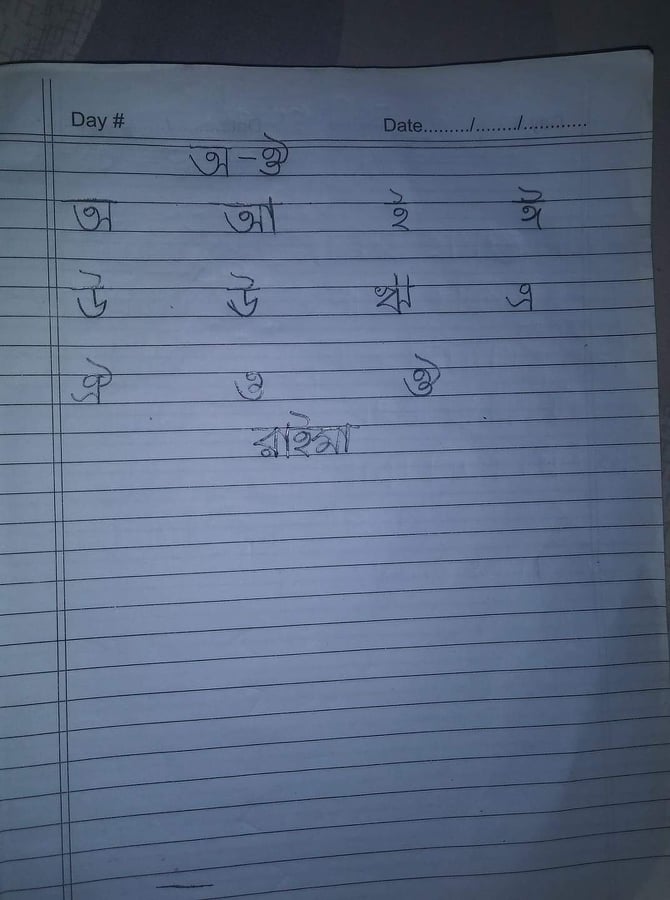 Day # Date........./......../............
অ - ঔ
অ আ ই ঈ
উ ঊ ঋ এ
ঐ ও ঔ
রাইমা